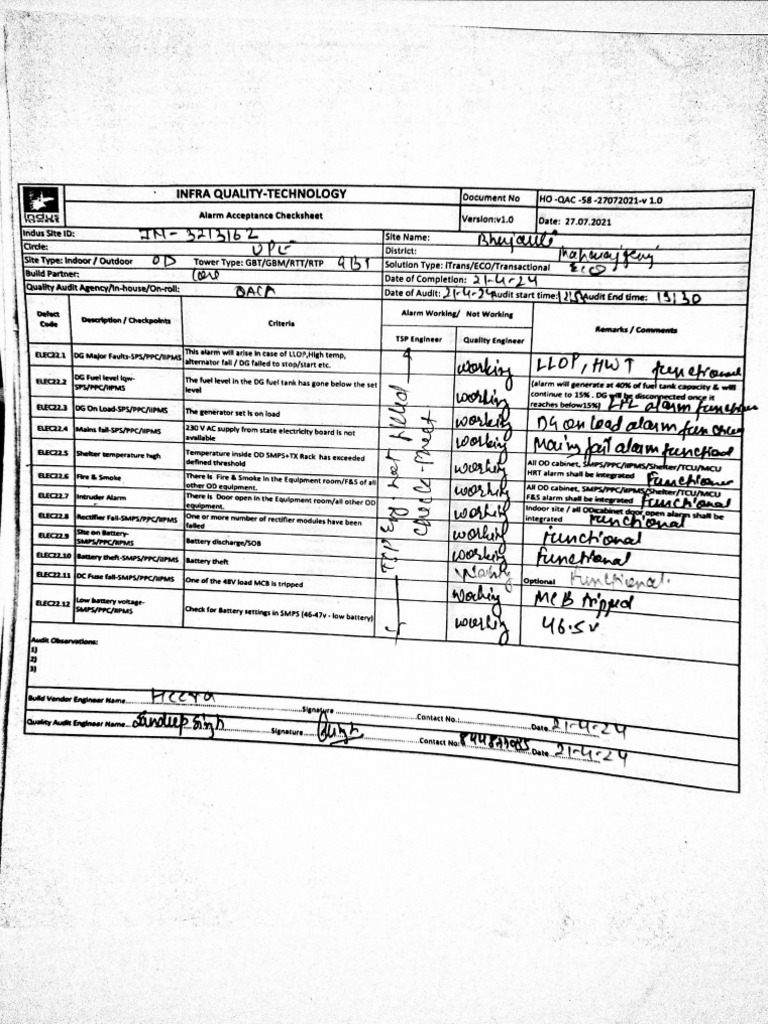 INFRA QUALITY-TECHNOLOGY
Alarm Acceptance Checksheet
Document No HO -QAC -58 -27072021-v 1.0
Version:v1.0 Date: 27.07.2021
Indus Site ID: IN-3213162 Site Name:
Circle: UPE District:
Site Type: Indoor / Outdoor OD Tower Type: GBT/GBM/RTT/RTP GBT Solution Type: ITrans/ECO/Transactional ECO
Build Partner: Date of Completion: 21-4-24
Quality Audit Agency/In-house/On-roll: Date of Audit: 21-4-24 Audit start time: Audit End time: 13:30
Defect Code Description / Checkpoints Criteria Alarm Working/ Not Working Remarks / Comments
TSP Engineer Quality Engineer
TSP Eng. not filled check-sheet
ELEC22.1 DG Major Faults-SPS/PPC/IIPMS This alarm will arise in case of LLOP,High temp, alternator fail / DG failed to stop/start etc. working LLOP, HWT functional
ELEC22.2 DG Fuel level low-SPS/PPC/IIPMS The fuel level in the DG fuel tank has gone below the set level working (alarm will generate at 40% of fuel tank capacity & will continue to 15% . DG will be disconnected once it reaches below15%) LFL alarm function
ELEC22.3 DG On Load-SPS/PPC/IIPMS The generator set is on load working DG on load alarm
ELEC22.4 Mains fail-SPS/PPC/IIPMS 230 V AC supply from state electricity board is not available working Mains fail alarm functional
ELEC22.5 Shelter temperature high Temperature inside OD SMPS+TX Rack has exceeded defined threshold working All OD cabinet, SMPS/PPC/IIPMS/Shelter/TCU/MCU HRT alarm shall be integrated
ELEC22.6 Fire & Smoke There is Fire & Smoke in the Equipment room/F&S of all other OD equipment. working All OD cabinet, SMPS/PPC/IIPMS/Shelter/TCU/MCU F&S alarm shall be integrated Functional
ELEC22.7 Intruder Alarm There is Door open in the Equipment room/all other OD equipment. working Indoor site / all OD cabinet door open alarm shall be integrated functional
ELEC22.8 Rectifier Fail-SMPS/PPC/IIPMS One or more number of rectifier modules have been failed working functional
ELEC22.9 Site on Battery-SMPS/PPC/IIPMS Battery discharge/SOB working functional
ELEC22.10 Battery theft-SMPS/PPC/IIPMS Battery theft Optional Functional
ELEC22.11 DC Fuse fail-SMPS/PPC/IIPMS One of the 48V load MCB is tripped working MCB tripped
ELEC22.12 Low battery voltage-SMPS/PPC/IIPMS Check for Battery settings in SMPS (46-47v - low battery) working 46.5v
Audit Observations:
1)
2)
3)
Build Vendor Engineer Name Signature Contact No.: Date 21-4-24
Quality Audit Engineer Name Sandeep Singh Signature Contact No: Date 21-4-24